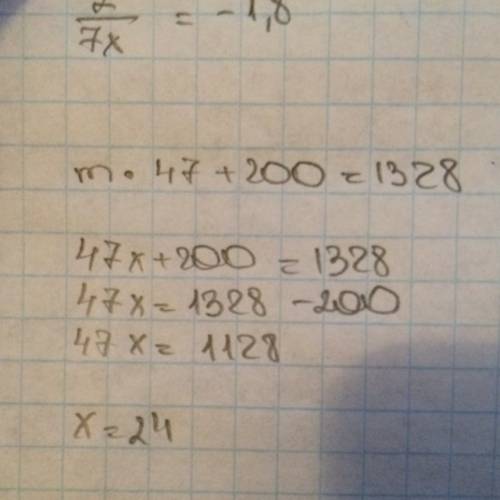 7x = -1,8
m · 47 + 200 = 1328
47x + 200 = 1328
47x = 1328 - 200
47x = 1128
x = 24